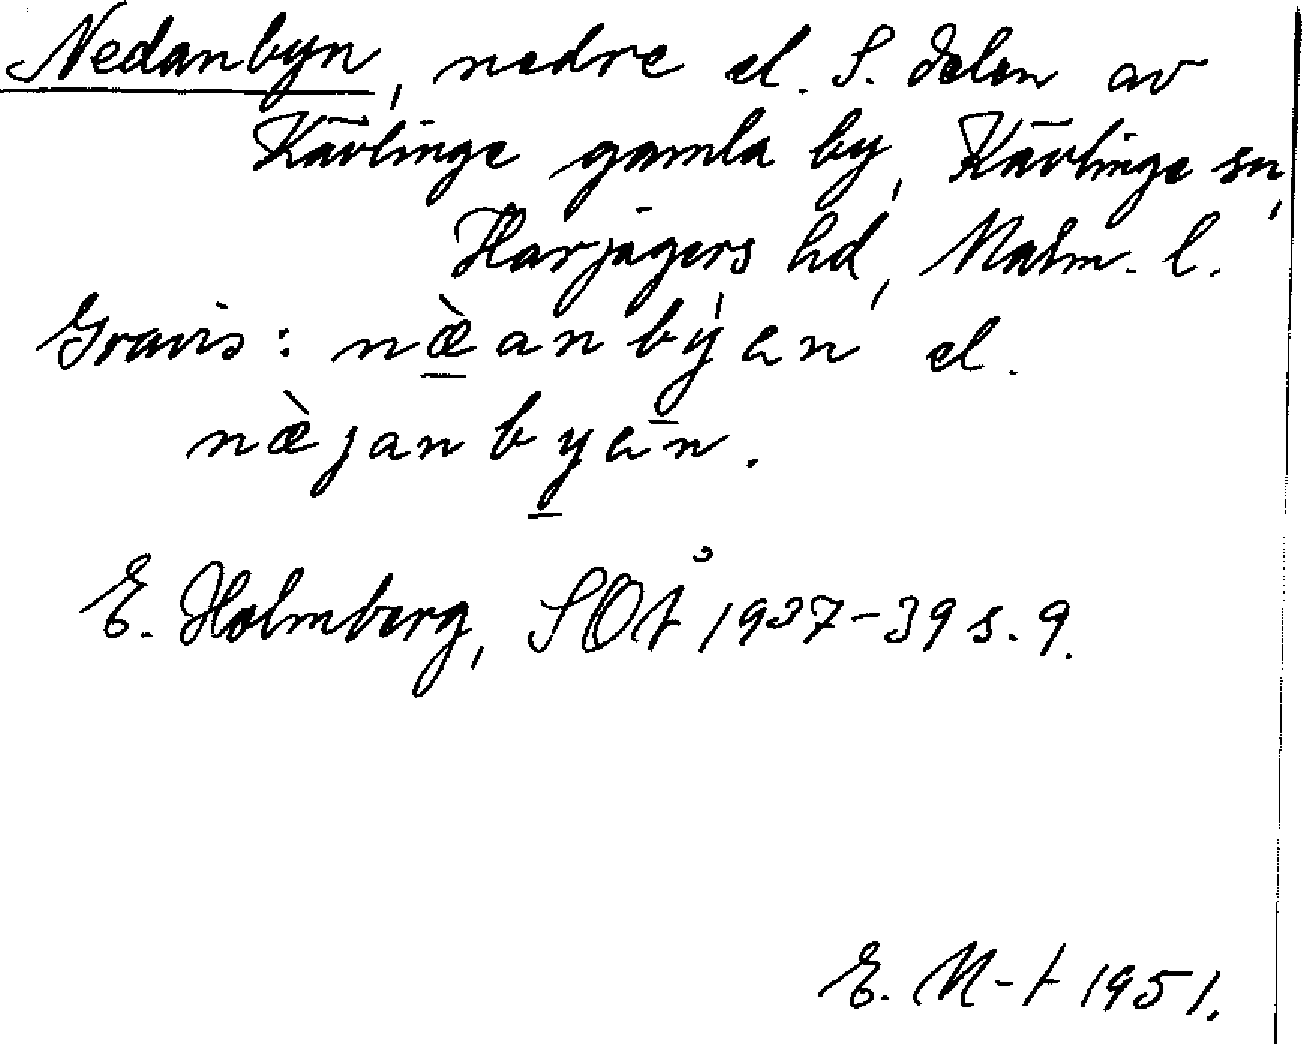 Nedanbyn, nedre el. S. delen av
Kävlinge gamla by, Kävlinge sn,
Harjagers hd, Malm. l.
Gravis: næ̀anby̍an el.
næ̀janbyan.
E. Holmberg, SOÅ 1937-39 s. 9.
E. N-t 1951.